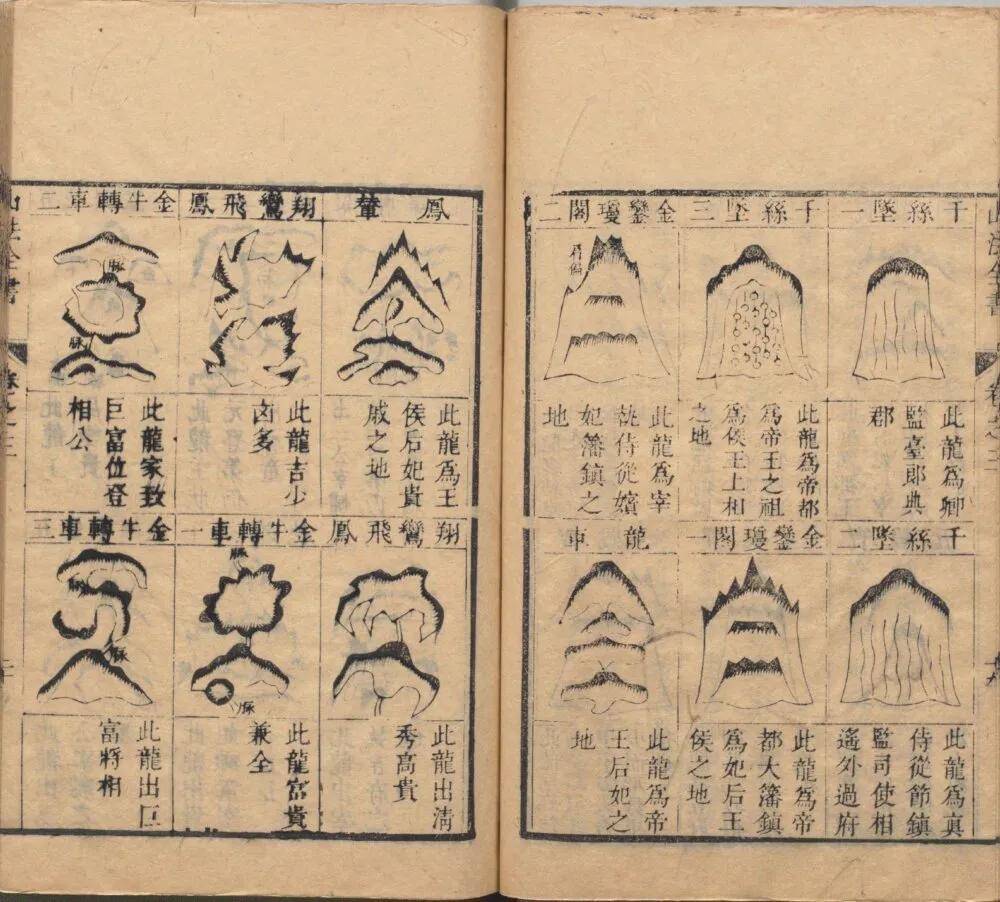 山法全書
卷之三
千絲墜一
此龍爲卿
監臺郎典
郡
千絲墜二
此龍爲眞
侍從節鎮
監司使相
遙外過府
千絲墜三
此龍爲帝都
爲帝王之祖
爲侯王上相
之地
金鑾瓊閣一
此龍爲帝
都大藩鎮
爲妃后王
侯之地
金鑾瓊閣二
此龍爲宰
執侍從嬪
妃藩鎮之
地
龍車
此龍爲帝
王后妃之
地
鳳輦
此龍爲王
侯后妃貴
戚之地
翔鸞飛鳳
此龍出淸
秀高貴
翔鸞飛鳳
此龍吉少
凶多
金牛轉車一
脉
脉
此龍富貴
兼全
金牛轉車二
脉
脉
此龍家致
巨富位登
相公
金牛轉車三
脉
脉
此龍出巨
富將相
山法全書
卷之三